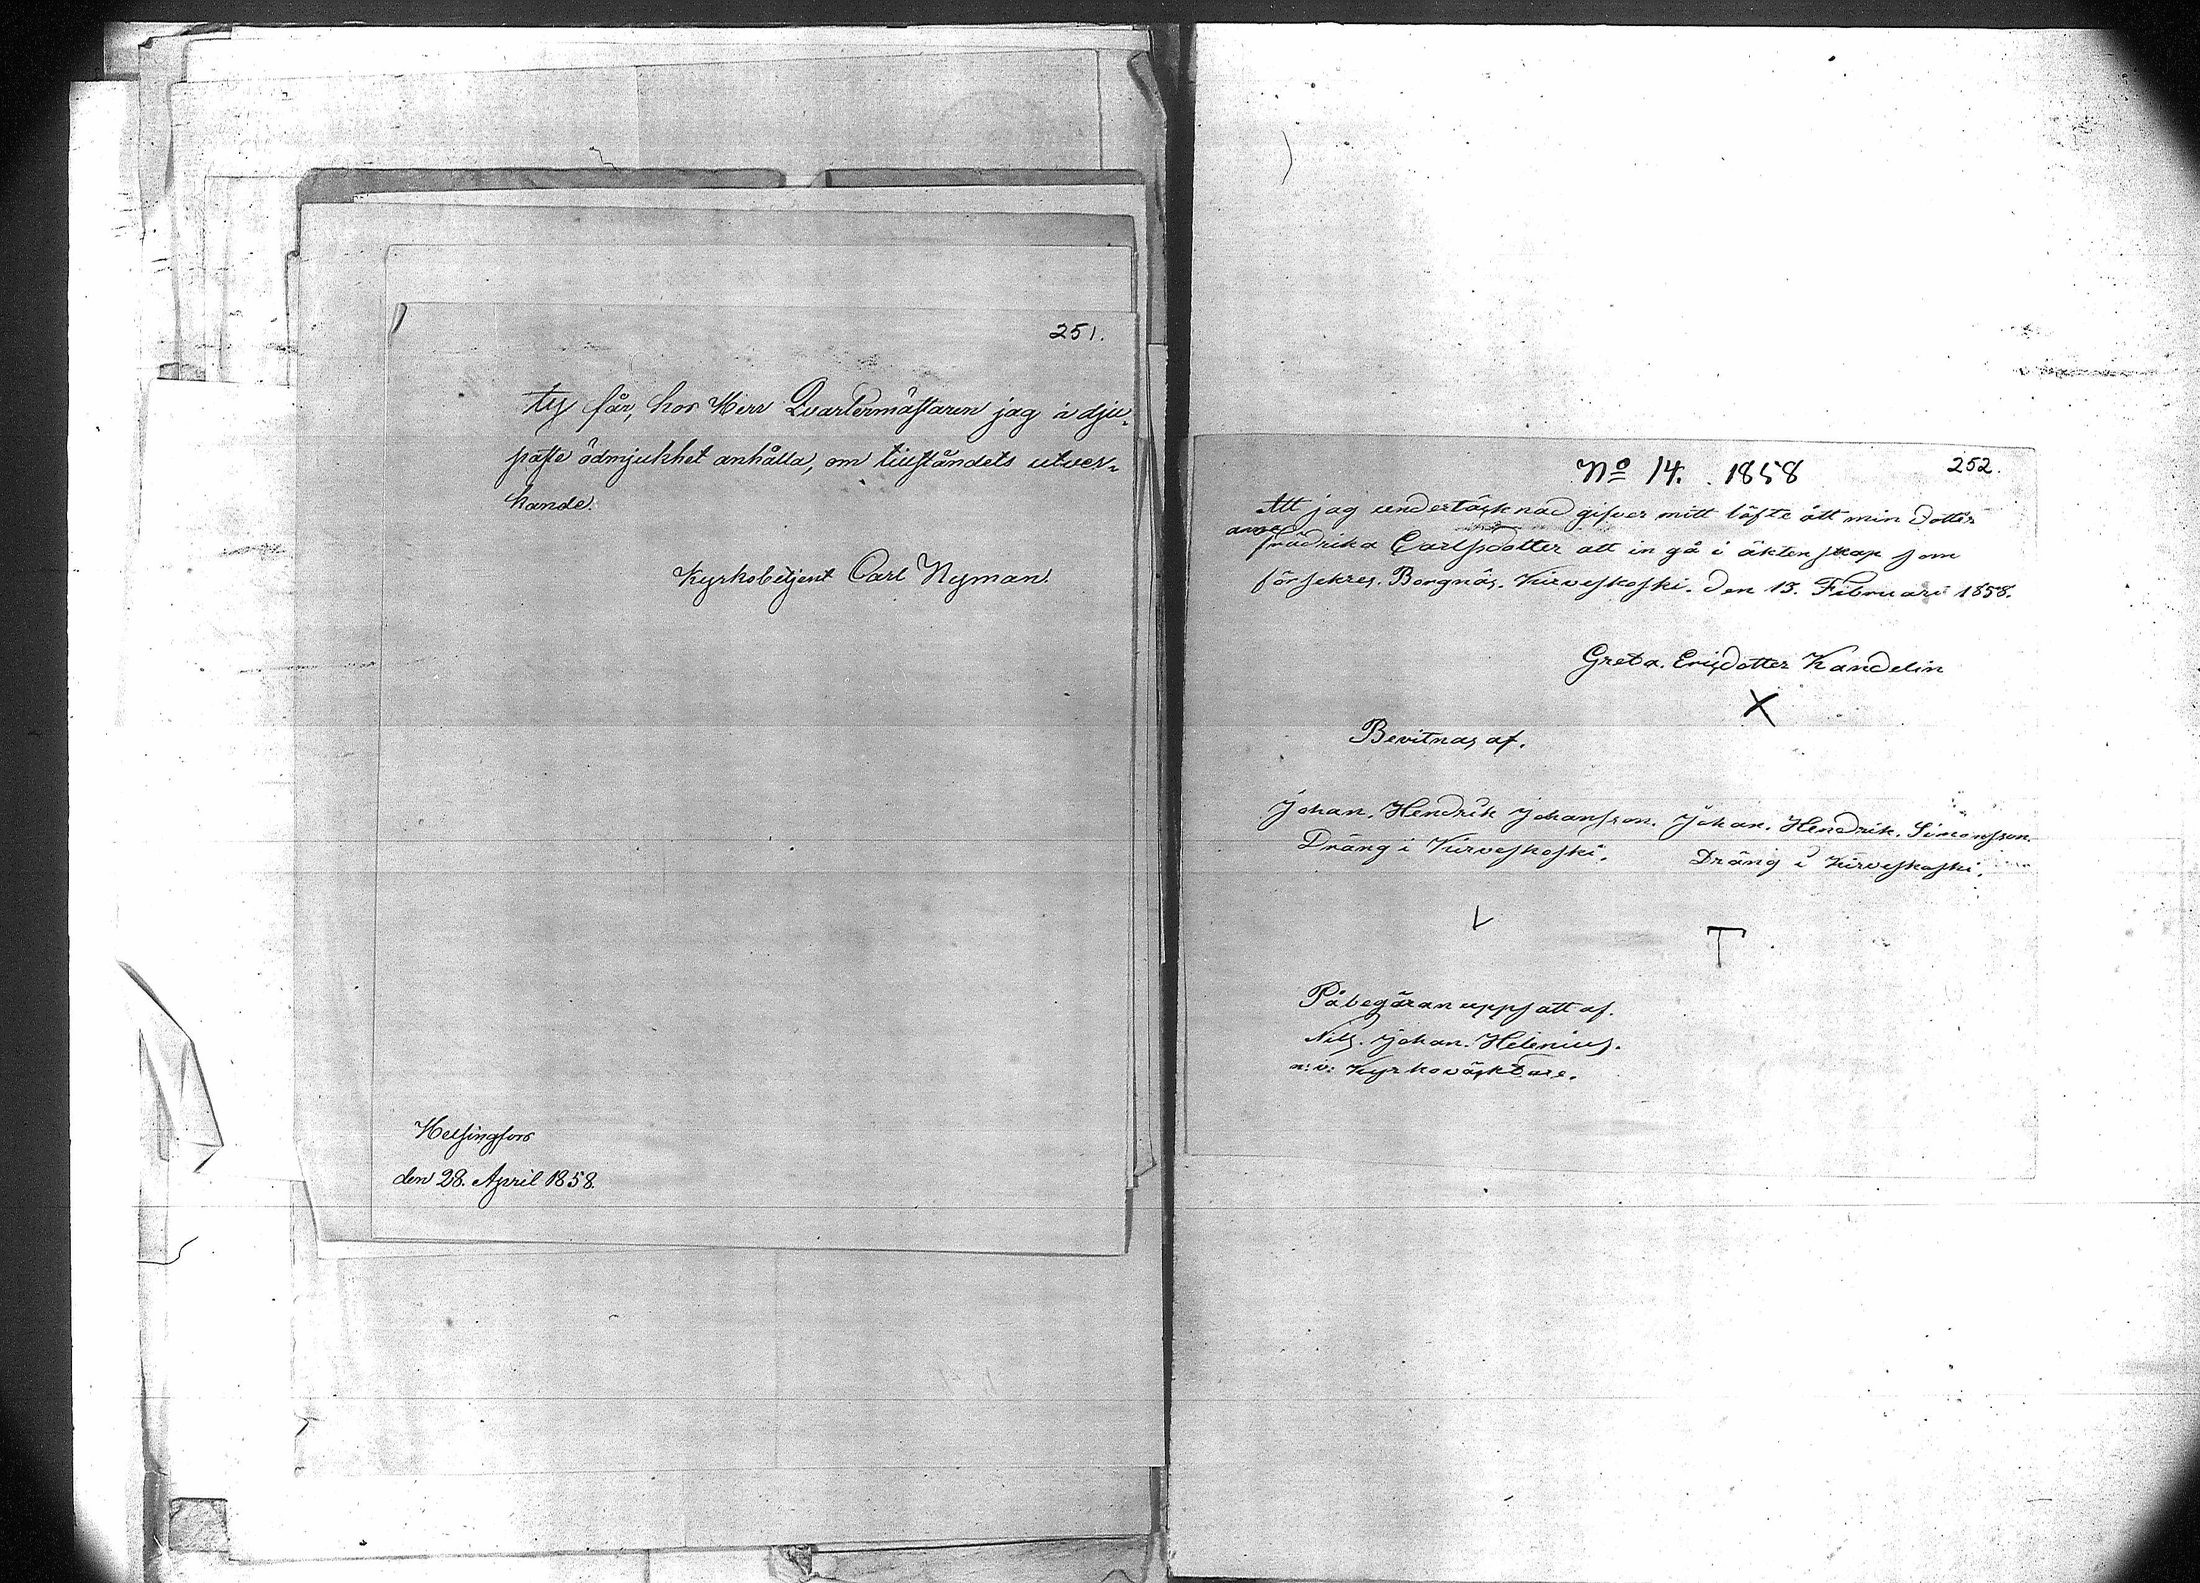 251.
ty får, hos Herr Qvartermästaren jag i dju-
paste ödmjukhet anhålla, om tillståndets utver-
kande.
Kyrkobetjent Carl Nyman.
Helsingfors
den 28. April 1858.
No 14. 1858
252.
Att jag undertäcknad gifver mitt löfte ått min Dotter
frädrika Carlsdotter att in gå i äktenskap som
försekres. Borgnäs. Kirveskoski. Den 13. Februari 1858.
Greta. Ericsdotter Kandelin
X
Bevitnas af.
Johan. Hendrik Johansson. Johan. Hendrik. Simonsson.
Dräng i Kirveskoski. Dräng i Kirveskoski.
V T
Påbegäran uppsatt af.
Nills. Johan. Helenius.
n: v: Kyrkoväktare.